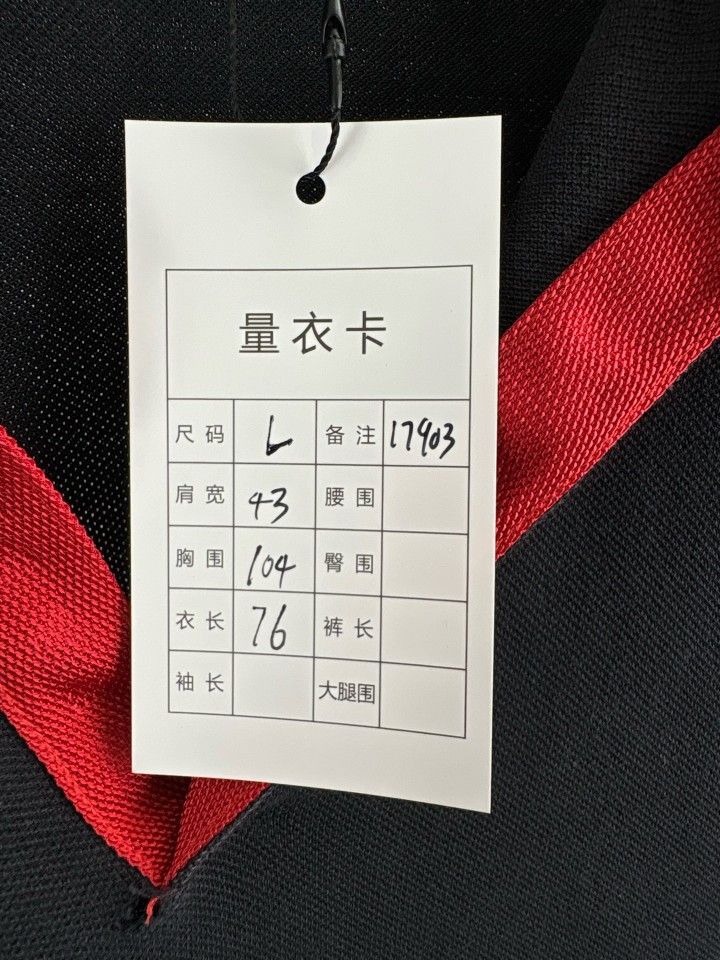 量衣卡
尺码 L 备注 17903
肩宽 43 腰围
胸围 104 臀围
衣长 76 裤长
袖长 大腿围